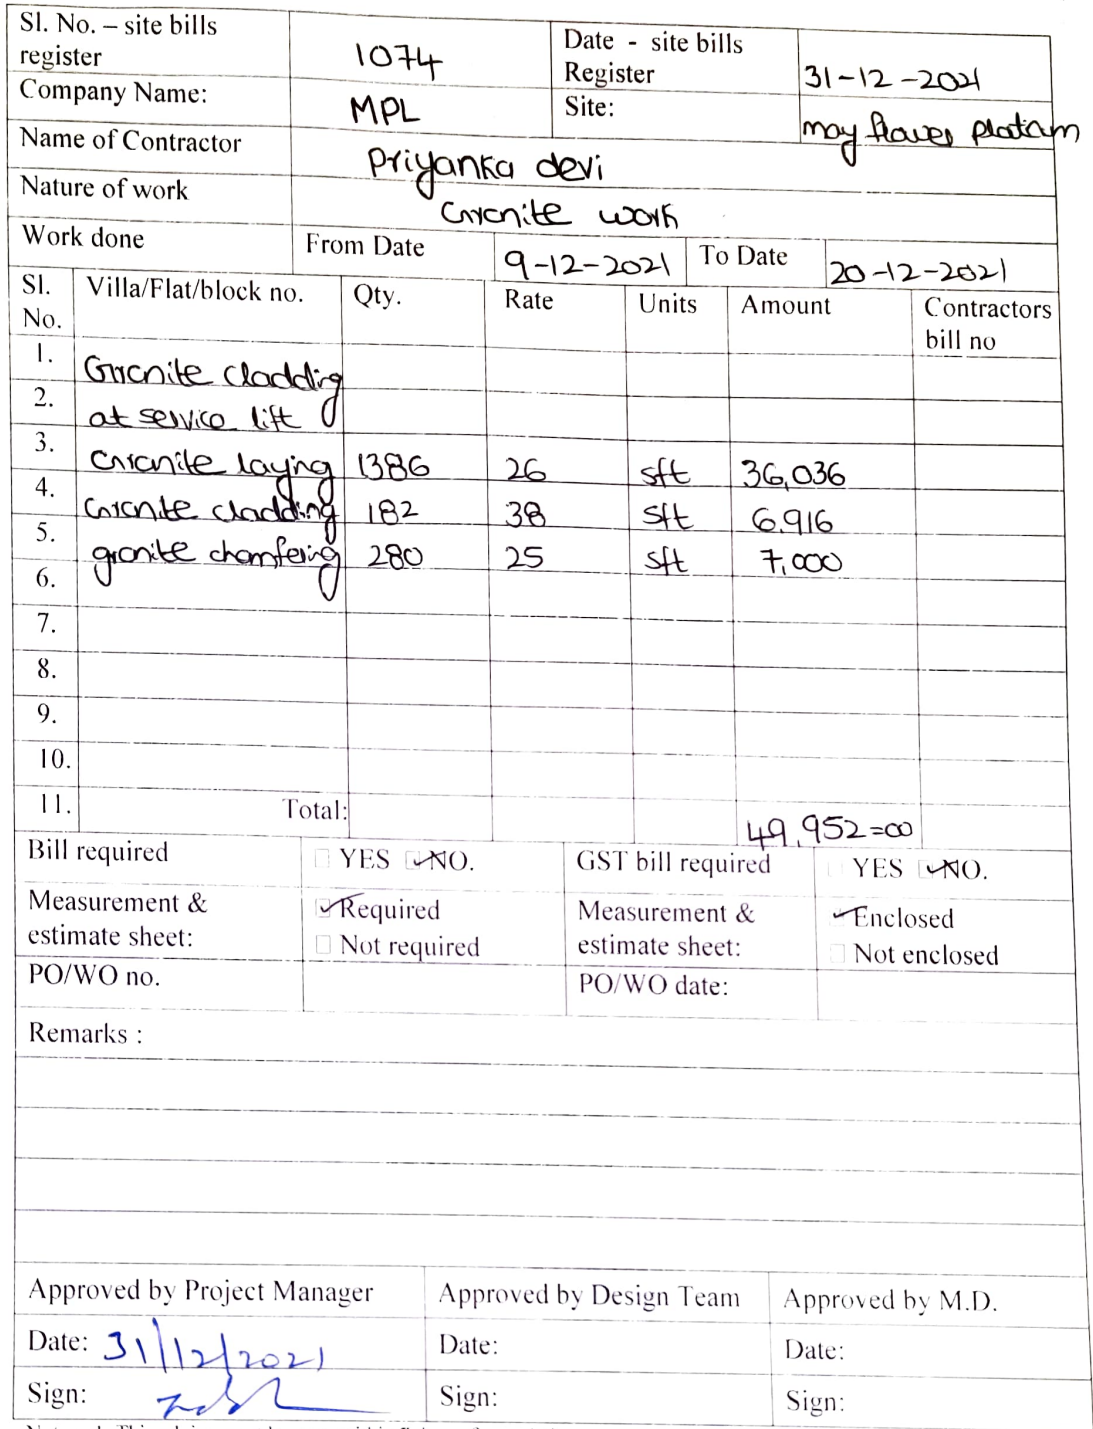 Sl. No. – site bills register 1074 Date - site bills Register 31-12-2021
Company Name: MPL Site: may flower platinum
Name of Contractor Priyanka devi
Nature of work Granite work
Work done From Date 9-12-2021 To Date 20-12-2021
Sl. No. Villa/Flat/block no. Qty. Rate Units Amount Contractors bill no
1. Granite cladding
2. at service lift
3. Granite laying 1386 26 sft 36,036
4. Granite cladding 182 38 sft 6,916
5. granite chamfering 280 25 sft 7,000
6.
7.
8.
9.
10.
11. Total: 49,952=00
Bill required YES NO. GST bill required YES NO.
Measurement & estimate sheet: Required Not required Measurement & estimate sheet: Enclosed Not enclosed
PO/WO no. PO/WO date:
Remarks :
Approved by Project Manager Approved by Design Team Approved by M.D.
Date: 31/12/2021 Date: Date:
Sign: Sign: Sign: